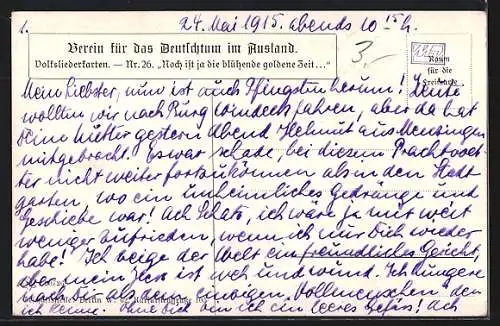 1.
24. Mai 1915. abends 10 15 h.
Verein für das Deutschtum im Ausland.
Volksliederkarten. — Nr. 26. „Noch ist ja die blühende goldene Zeit..."
3,-
Raum
für die
Freimarke
Mein Liebster, nun ist auch Pfingsten herum! Heute
wollten wir nach Burg Windeck fahren, aber da hat
Deine Mutter gestern Abend Helmut aus Menzingen
mitgebracht. Es war schade, bei diesem Prachtwet-
ter nicht weiter fortzukommen als in den Stadt
garten, wo ein unheimliches Gedränge und
Geschiebe war! Ach Schatz, ich wäre ja mit weit
weniger zufrieden, wenn ich nur Dich wieder
habe! Ich zeige der Welt ein freundliches Gesicht,
aber mein Herz ist weh und wund. Ich hungere
nach Dir als dem einzigen „Vollmenschen", den
ich kenne. Ohne Dich bin ich ein leeres Gefäss! Ach